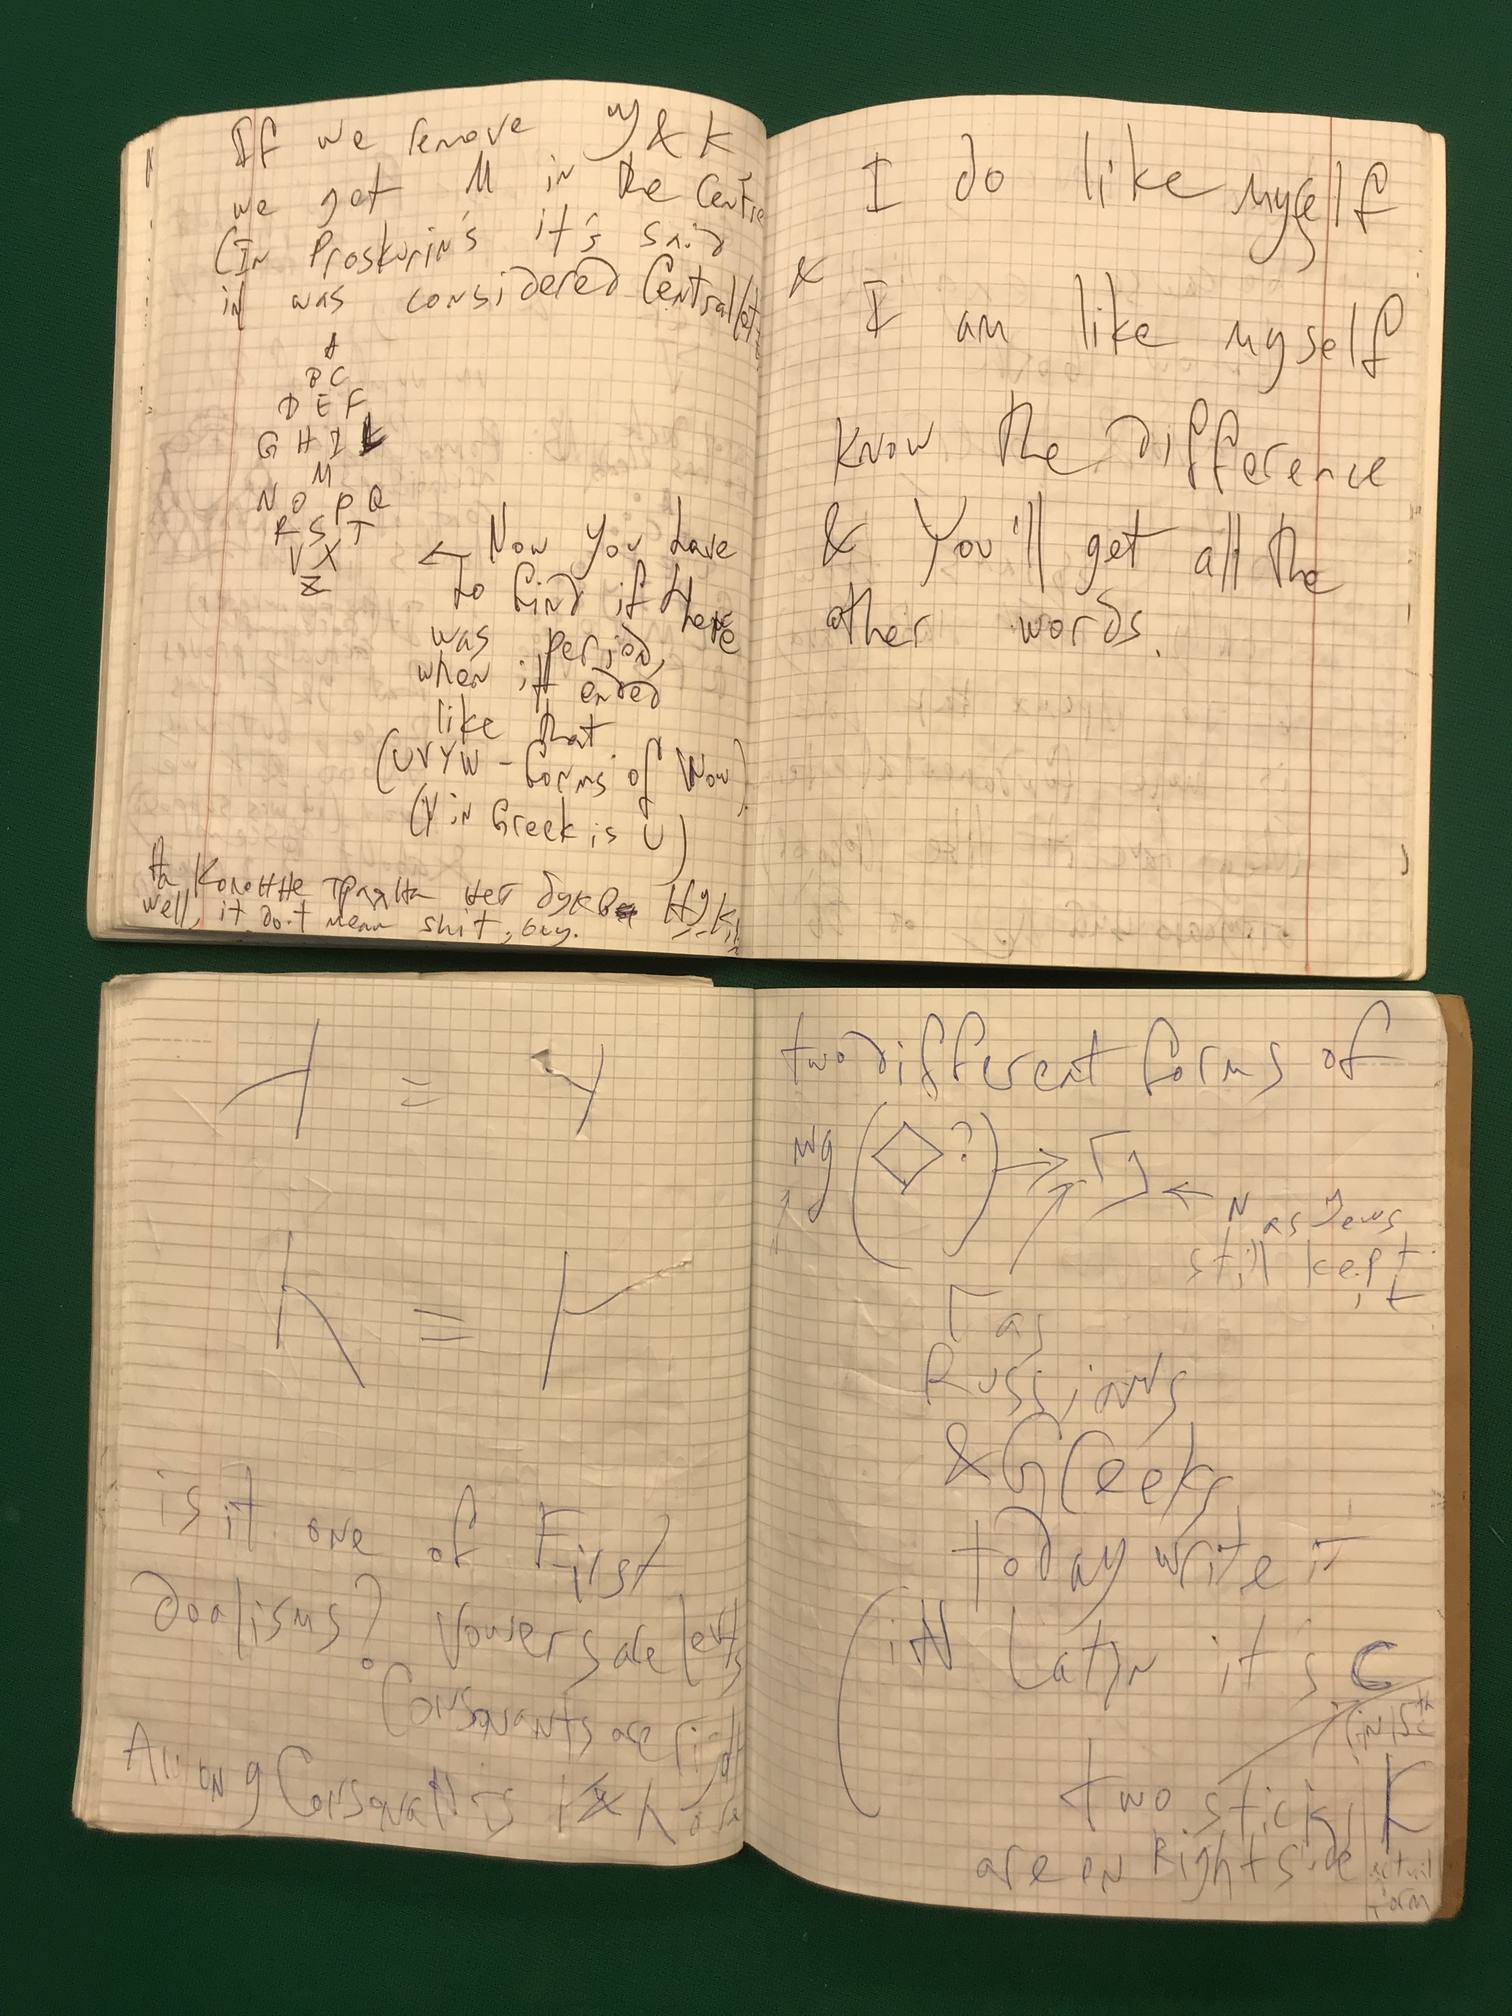 If we remove У & K
we get M in the Centre
(In Proskurin's it's said
it was considered Central let
A
B C
D E F
G H I L
M
N O P Q
R S T
V X
Z
← Now you have
to find if there
was period,
when it ended
like that
(UVYW - forms of Wow)
(Y in Greek is U)
На Колонне трояна нет букв Н У К
well, it do.t mean shit, buy.
I do like myself
&
I am like myself
know the difference
& you'll get all the
other words.
=
=
is it one of First
doalisms? Vowers are lefts
Consonants are right
Among Consonants
two different forms of
ng (◇?) →
← N as Jews
still kept
it
Г as
Russians
& Greeks
today write it
(in Latin it's C
two sticks K
are on Right side
actual
form